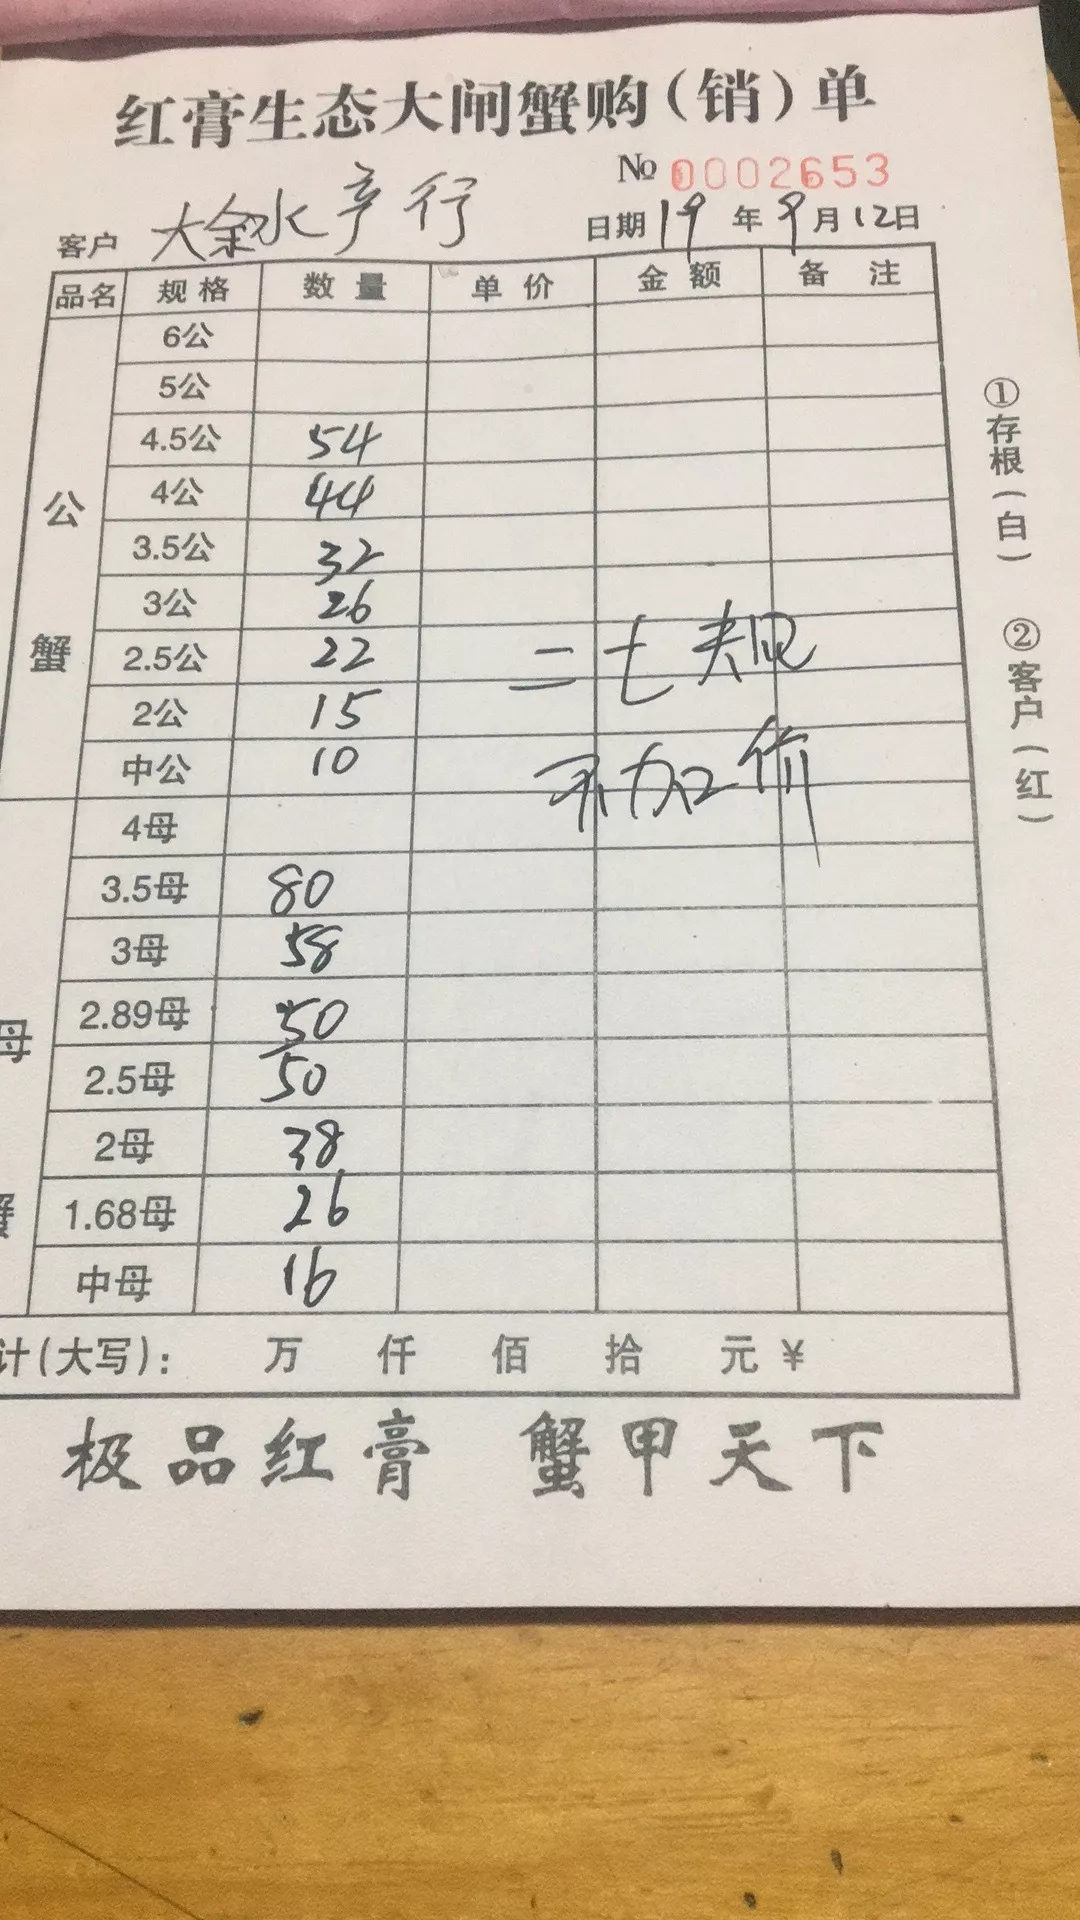 红膏生态大闸蟹购(销)单
№ 0002653
客户 大金水产行 日期 19年9月12日
品名 规格 数量 单价 金额 备注
公蟹
6公
5公
4.5公 54
4公 44
3.5公 32
3公 26
2.5公 22
2公 15
中公 10
二七规
不加价
母蟹
4母
3.5母 80
3母 58
2.89母 50
2.5母 50
2母 38
1.68母 26
中母 16
计(大写): 万 仟 佰 拾 元 ¥
极品红膏 蟹甲天下
①存根(白)
②客户(红)